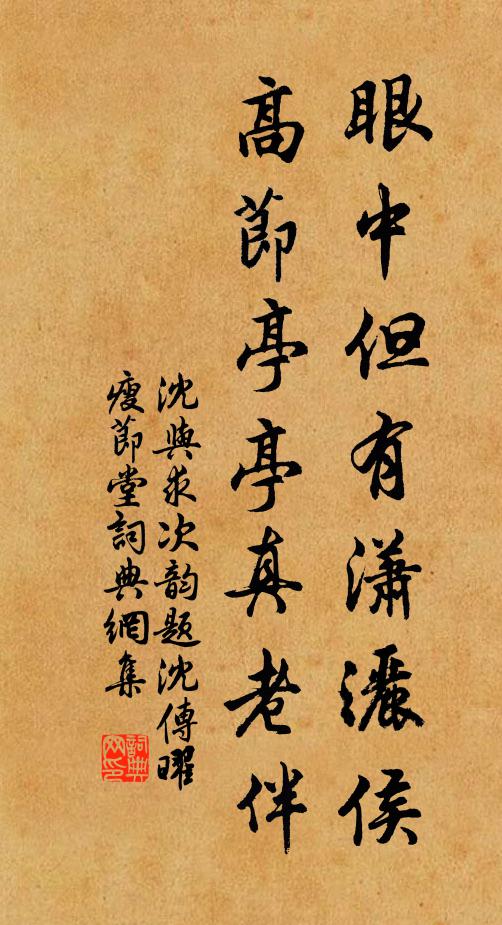 眼中但有瀟灑侯
高節亭亭真老伴
沈與求次韵題沈傅曜
瘦節堂詞典網集
詞典網印